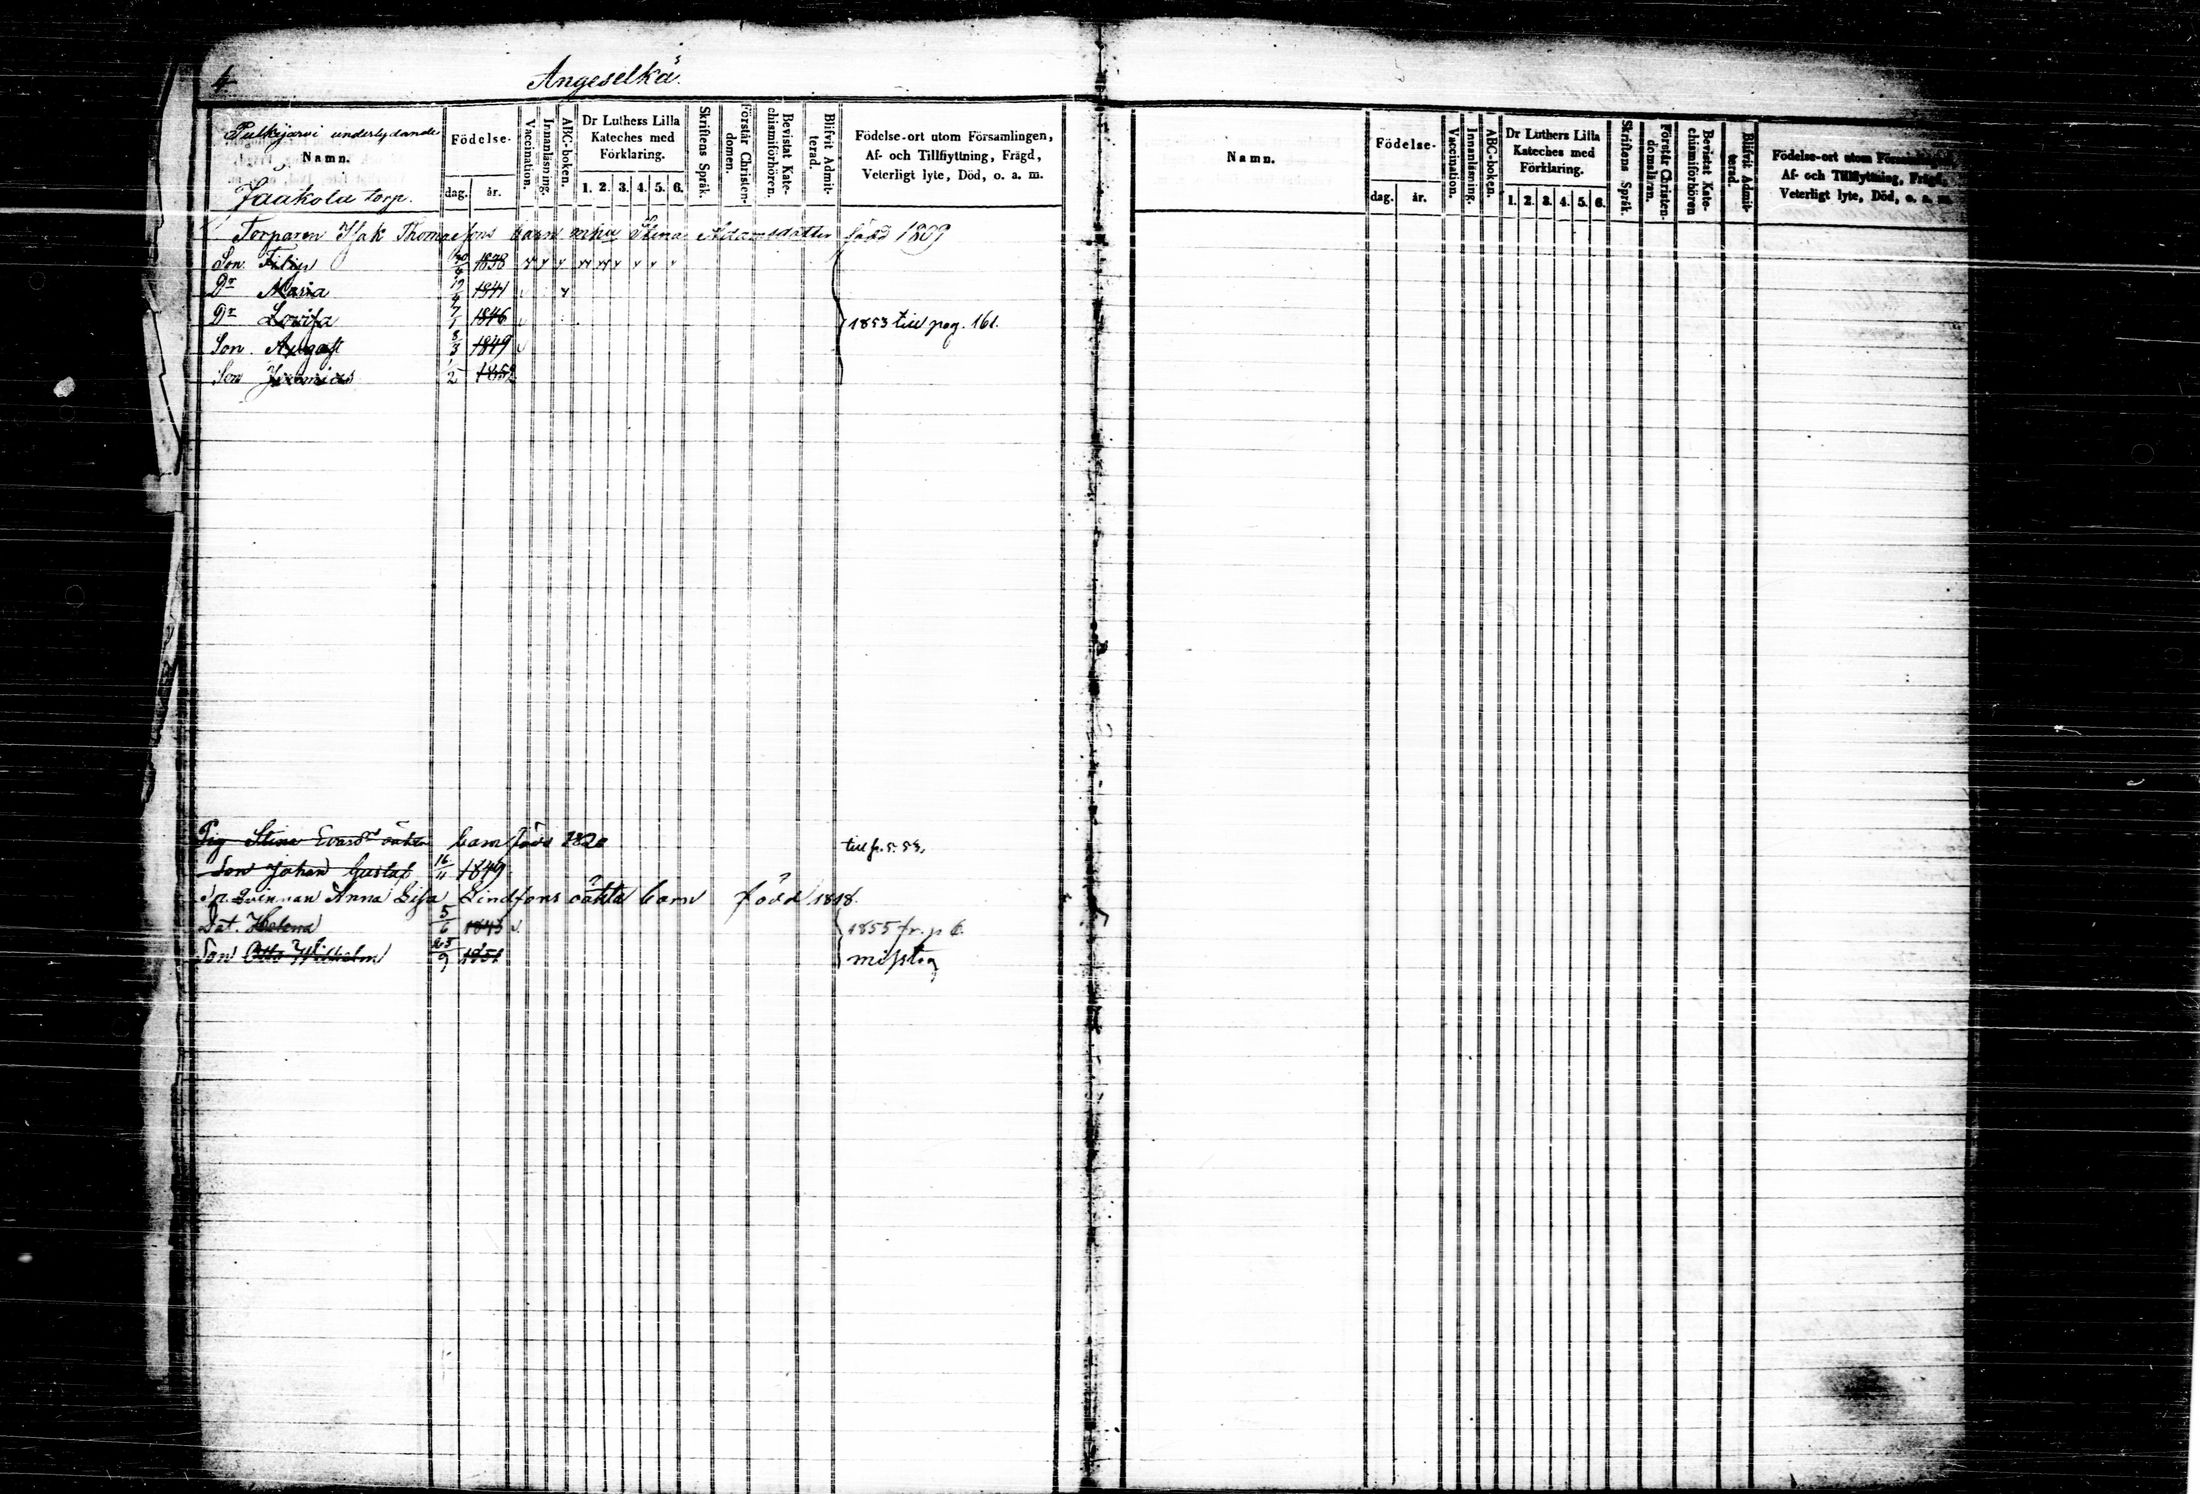 4
Angeselkä.
Pulkijärvi underlydande
Namn.
Jaakola torp.
Födelse-
dag. år.
Vaccination.
Innanläsning.
ABC-boken.
Dr Luthers Lilla
Kateches med
Förklaring.
1. 2. 3. 4. 5. 6.
Skriftens Språk.
Förstår Christen-
domen.
Bevistat Kate-
chismiförhören.
Blifvit Admit-
terad.
Födelse-ort utom Församlingen,
Af- och Tillflyttning, Frägd,
Veterligt lyte, Död, o. a. m.
Torparen Isak Thomassons barn m. hu Stina Adamsdotter född 1809
Son Filip 20/6 1838
Dr Maria 19/4 1841
Dr Lovisa 7/1 1846 1853 till pag. 161.
Son August 8/3 1849
Son Jeremias 1/2 1852
Pig Stina Evardsd oäkta barn född 1820 till p. 553.
Son Johan Gustaf 16/11 1849
Qvinnan Anna Lisa Lindfors oäkta barn född 1818.
Dat. Helena 5/6 1843 1855 fr. p 6.
Son Otto Wilhelm 23/9 1851 misstag
Namn.
Födelse-
dag. år.
Vaccination.
Innanläsning.
ABC-boken.
Dr Luthers Lilla
Kateches med
Förklaring.
1. 2. 3. 4. 5. 6.
Skriftens Språk.
Förstår Christen-
domsläran.
Bevistat Kate-
chismiförhören
Blifvit Admit-
terad.
Födelse-ort utom Församl
Af- och Tillflyttning, Frägd,
Veterligt lyte, Död, o. a. m.